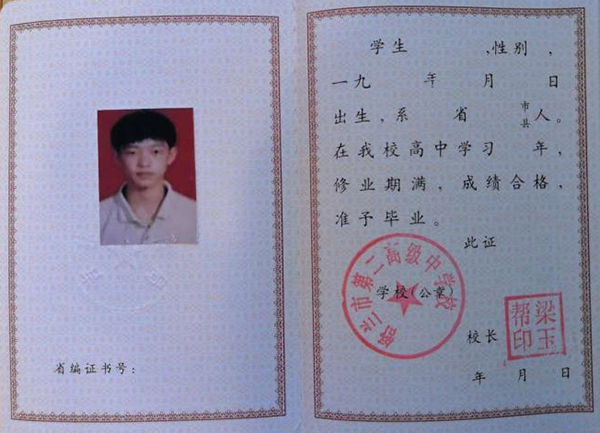 省编证书号：
学生 、性别 ，
一九 年 月 日
出生，系 省 市县 人。
在我校高中学习 年，
修业期满，成绩合格，
准予毕业。
此证
兴市第二高级中学校
学校（公章）
校长
梁玉
帮印
年 月 日